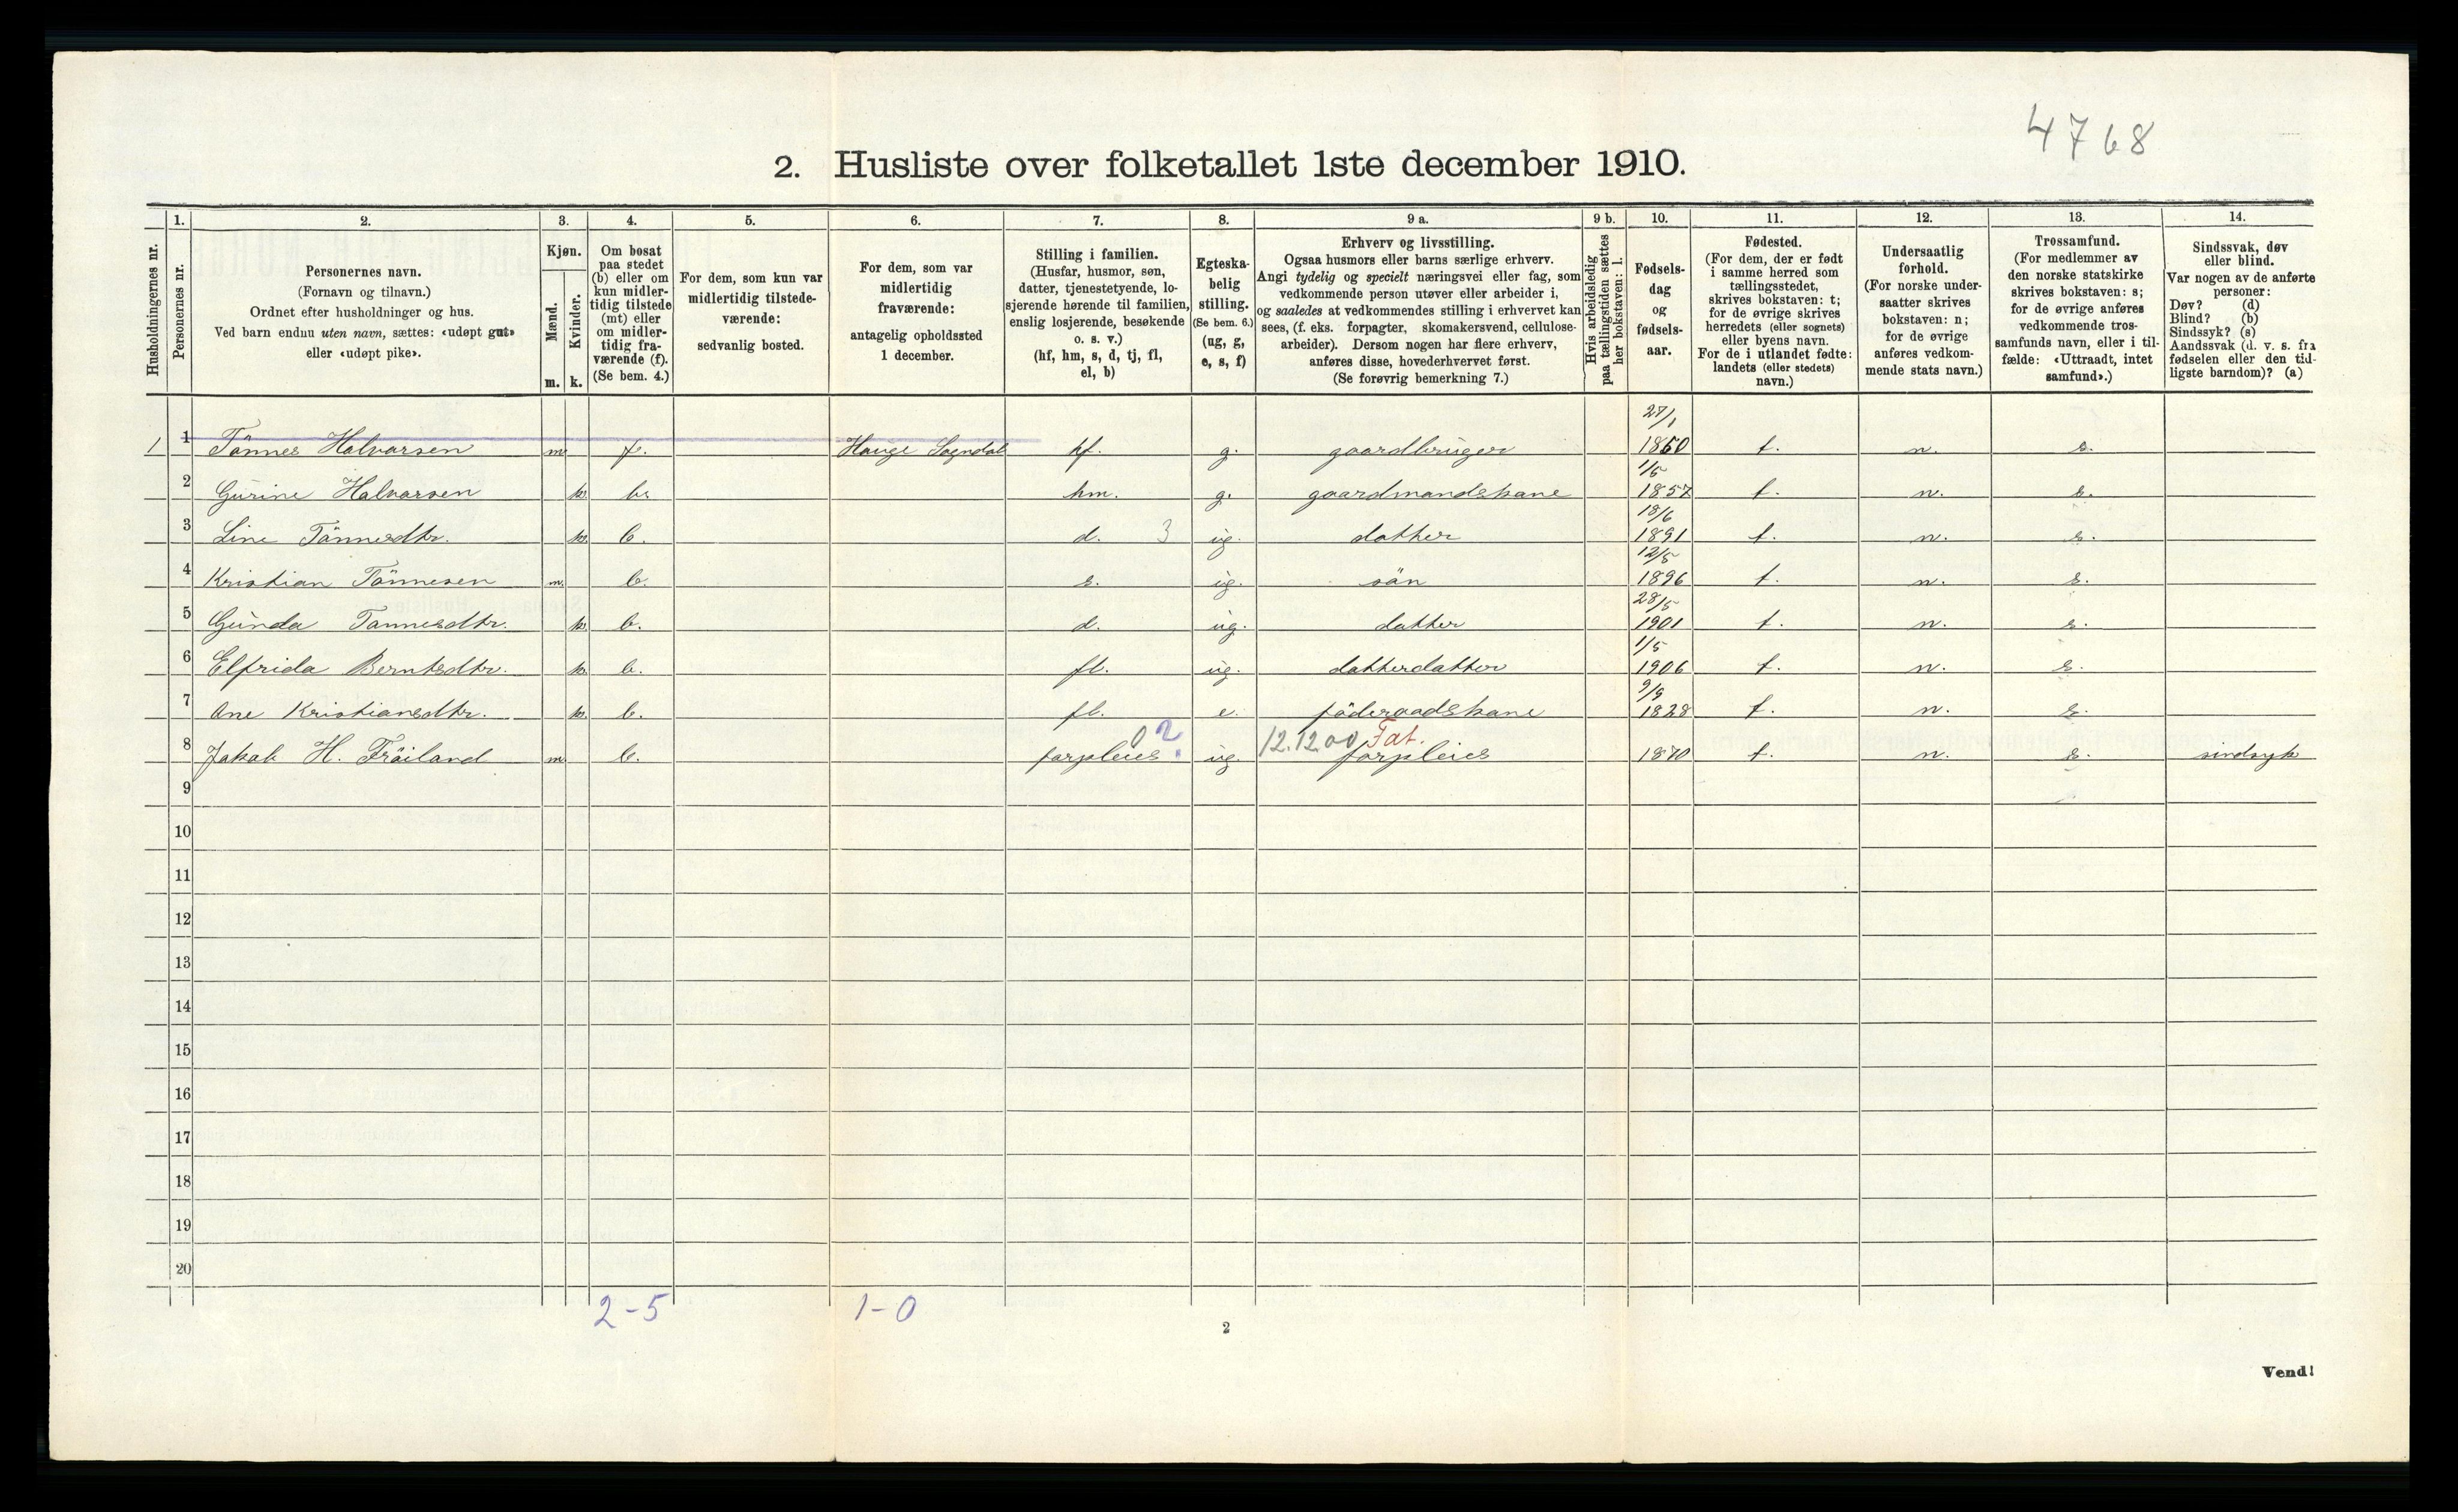 4768
2. Husliste over folketallet 1ste december 1910.
Husholdningernes nr.
1.
Personernes nr.
2.
Personernes navn.
(Fornavn og tilnavn.)
Ordnet efter husholdninger og hus.
Ved barn endnu uten navn, sættes: «udøpt gut»
eller «udøpt pike».
3.
Kjøn.
Mænd.
Kvinder.
m. k.
4.
Om bosat
paa stedet
(b) eller om
kun midler-
tidig tilstede
(mt) eller
om midler-
tidig fra-
værende (f).
(Se bem. 4.)
5.
For dem, som kun var
midlertidig tilstede-
værende:
sedvanlig bosted.
6.
For dem, som var
midlertidig
fraværende:
antagelig opholdssted
1 december.
7.
Stilling i familien.
(Husfar, husmor, søn,
datter, tjenestetyende, lo-
sjerende hørende til familien,
enslig losjerende, besøkende
o. s. v.)
(hf, hm, s, d, tj, fl,
el, b)
8.
Egteska-
belig
stilling.
(Se bem. 6.)
(ug, g,
e, s, f)
9 a.
Erhverv og livsstilling.
Ogsaa husmors eller barns særlige erhverv.
Angi tydelig og specielt næringsvei eller fag, som
vedkommende person utøver eller arbeider i,
og saaledes at vedkommendes stilling i erhvervet kan
sees, (f. eks. forpagter, skomakersvend, cellulose-
arbeider). Dersom nogen har flere erhverv,
anføres disse, hovederhvervet først.
(Se forøvrig bemerkning 7.)
9 b.
Hvis arbeidsledig
paa tællingstiden sættes
her bokstaven: l.
10.
Fødsels-
dag
og
fødsels-
aar.
11.
Fødested.
(For dem, der er født
i samme herred som
tællingsstedet,
skrives bokstaven: t;
for de øvrige skrives
herredets (eller sognets)
eller byens navn.
For de i utlandet fødte:
landets (eller stedets)
navn.)
12.
Undersaatlig
forhold.
(For norske under-
saatter skrives
bokstaven: n;
for de øvrige
anføres vedkom-
mende stats navn.)
13.
Trossamfund.
(For medlemmer av
den norske statskirke
skrives bokstaven: s;
for de øvrige anføres
vedkommende tros-
samfunds navn, eller i til-
fælde: «Uttraadt, intet
samfund».)
14.
Sindssvak, døv
eller blind.
Var nogen av de anførte
personer:
Døv? (d)
Blind? (b)
Sindssyk? (s)
Aandssvak (d. v. s. fra
fødselen eller den tid-
ligste barndom)? (a)
1 1 Tönnes Halvorsen m f. Hauge Sogndal hf. g. gaardbruger 27/1 1860 t. n. s.
2 Gurine Halvorsen k. b. hm. g. gaardmandskane 1/5 1857 t. n. s.
3 Line Tönnesdtr. k. b. d. 3 ug. datter 18/6 1891 t. n. s.
4 Kristian Tönnesen m. b. s. ug. sön 12/5 1896 t. n. s.
5 Gunda Tönnesdtr. k. b. d. ug. datter 28/5 1901 t. n. s.
6 Elfrida Berntsdtr. k. b. fl. ug. datterdatter 1/5 1906 t. n. s.
7 Ane Kristiansdtr. k. b. fl. e. föderaadskane 9/9 1828 t. n. s.
0 2 12.12.00 Fat.
8 Jakob H. Fröiland m b. forpleies ug. forpleies 1870 t. n. s. sindsyk
9
10
11
12
13
14
15
16
17
18
19
20
2-5 1-0
2
Vend!